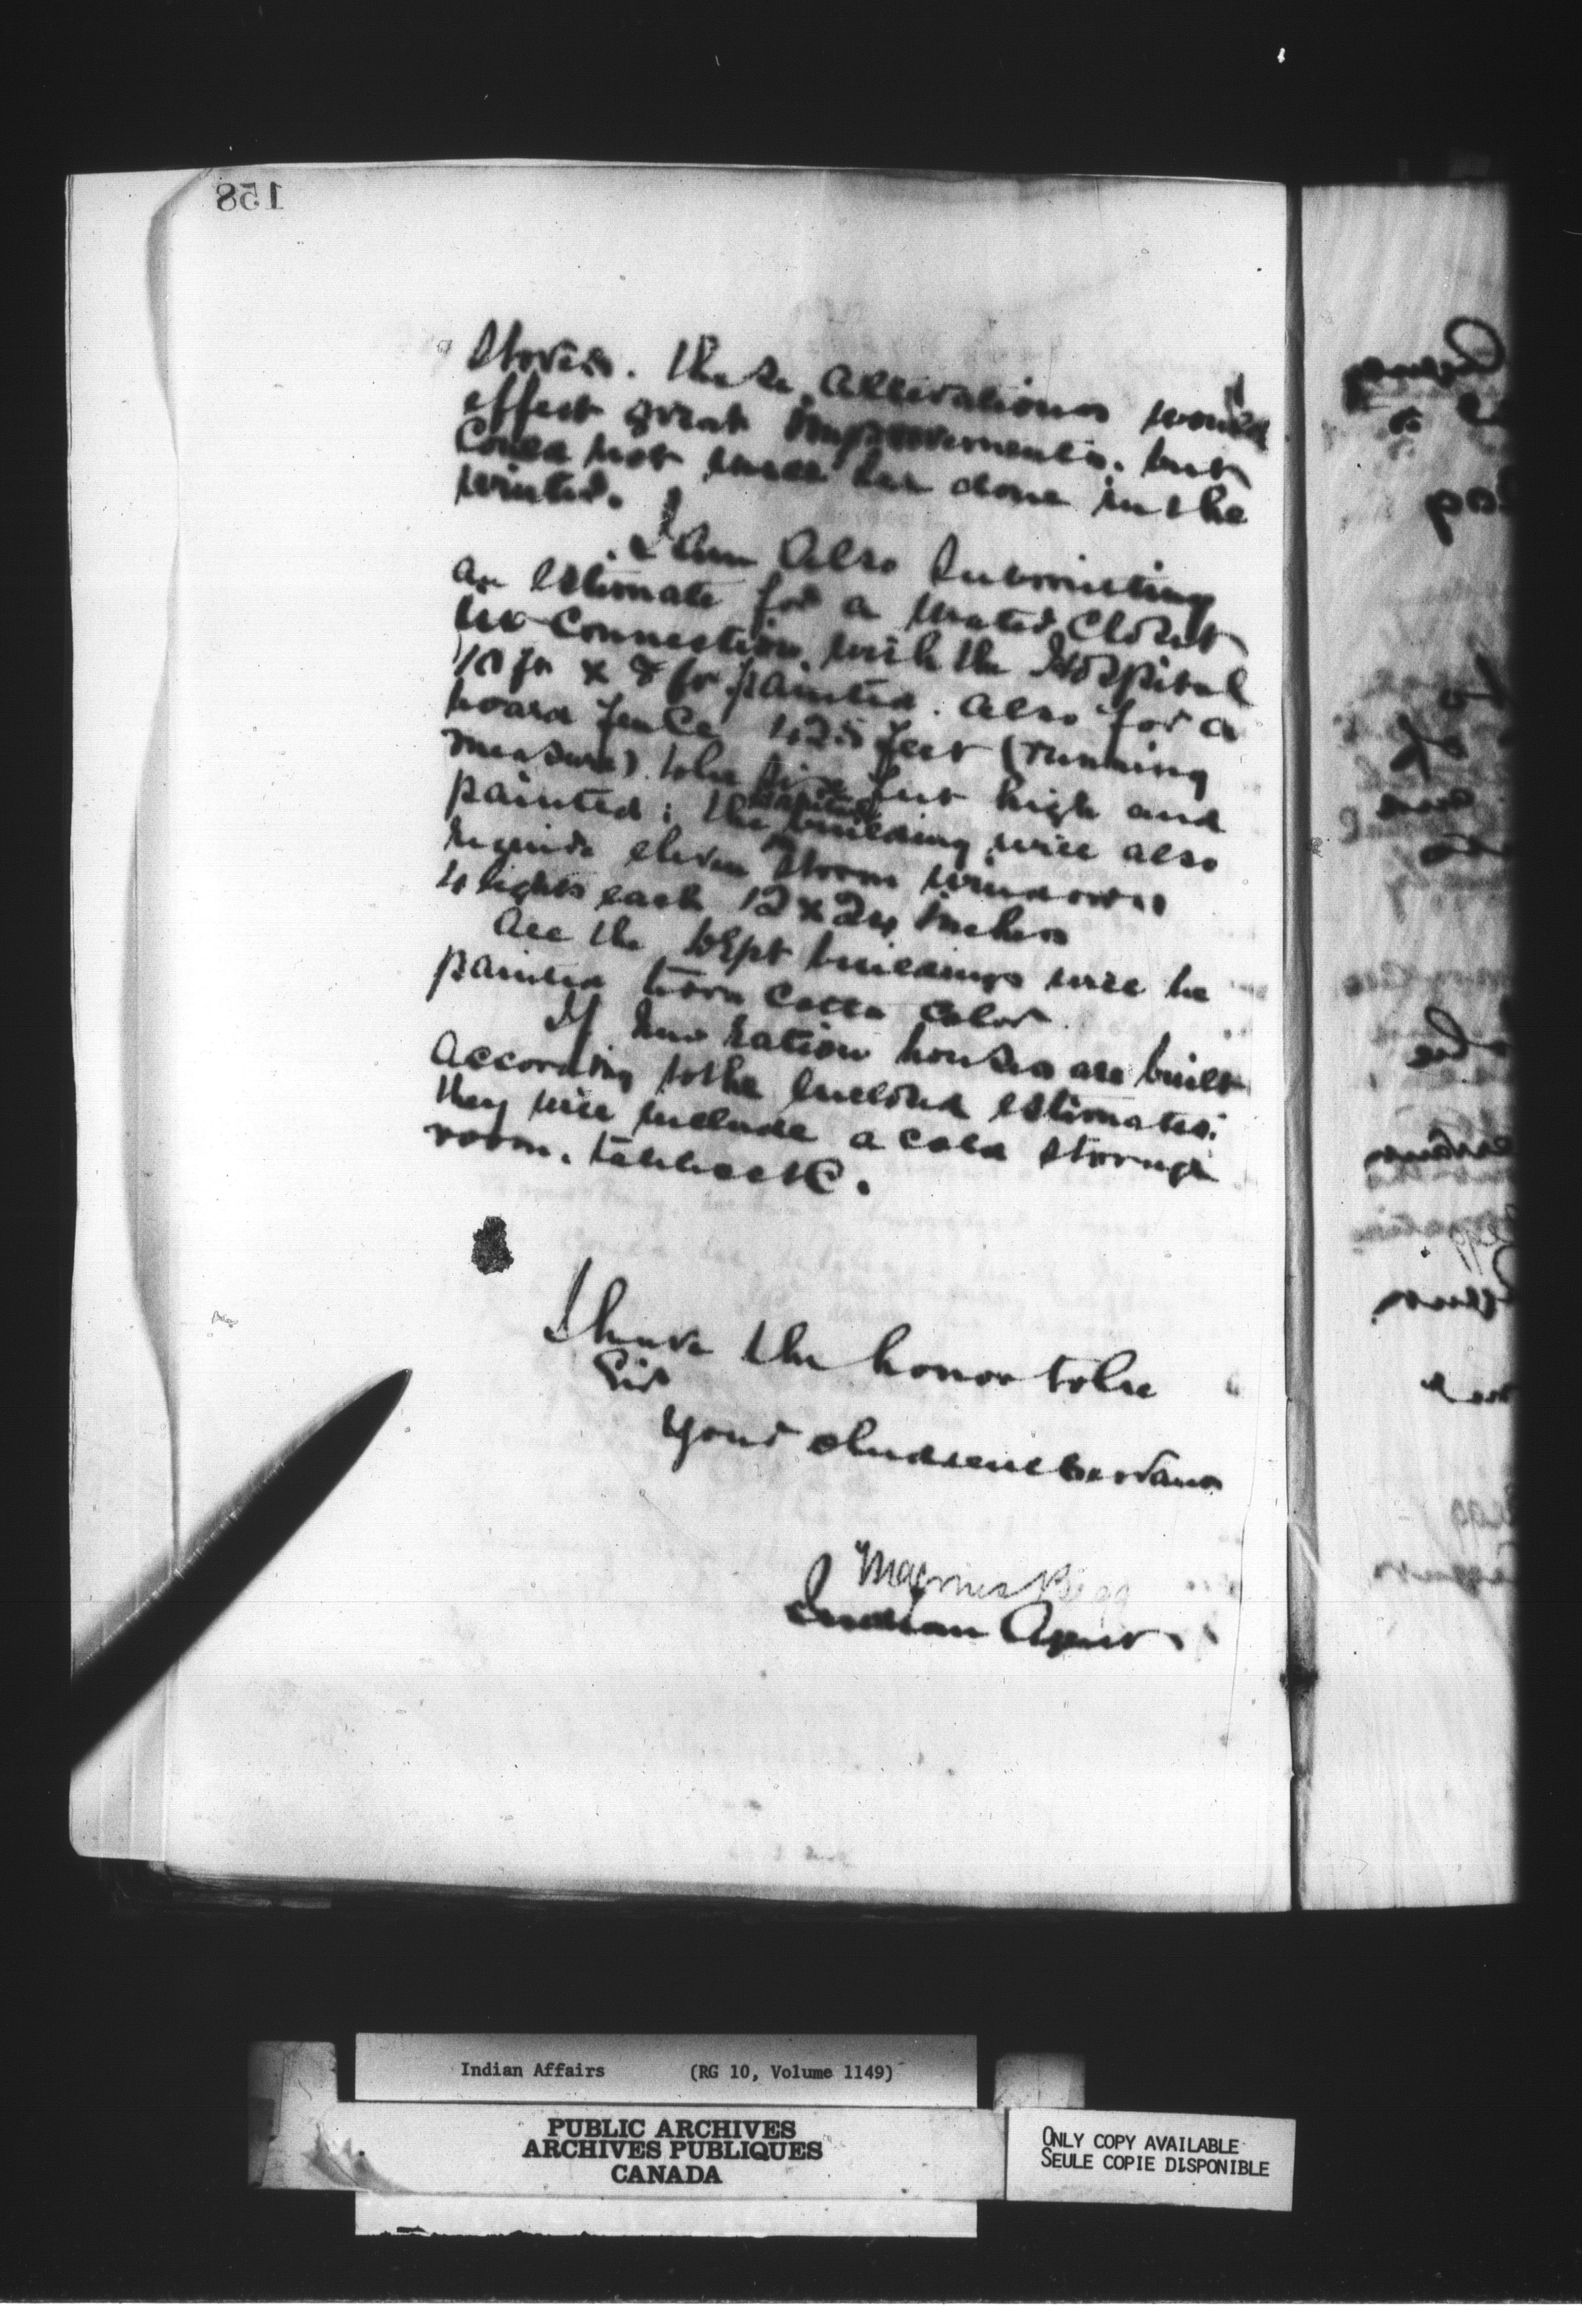 158
Stoves. These alterations would
effect great improvements. but
could not well be done in the
winter.
I am also submitting
an estimate for a water closet
in connection with the Hospital
10 ft x 8 ft painted. also for a
board fence 425 feet (running
measure) to be five feet high and
painted; the Hospital building will also
require eleven storm windows
4 lights each 12 x 24 inches
All the Dept buildings will be
painted terra cotta color.
If new ration houses are built
according to the enclosed estimates.
they will include a cold storage
room.
I have the honor to be
Sir
Your obedient servant
Magnus Begg
Indian Agent.
Indian Affairs (RG 10, Volume 1149)
PUBLIC ARCHIVES
ARCHIVES PUBLIQUES
CANADA
ONLY COPY AVAILABLE
SEULE COPIE DISPONIBLE